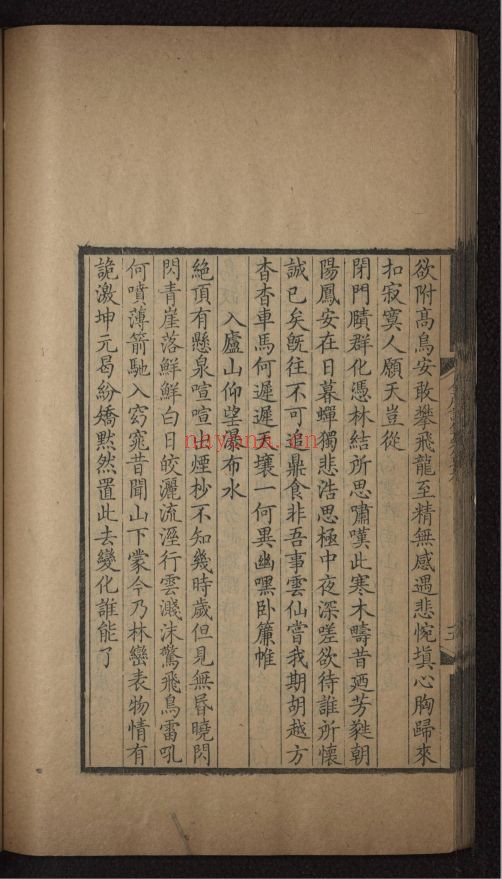 欲附高鳥安敢攀飛龍至精無感遇悲惋填心胸歸來
扣寂寞人願天豈從
閉門賾群化憑林結所思嘯嘆此寒木疇昔廼芳蕤朝
陽鳳安在日暮蟬獨悲浩思極中夜深嗟欲待誰所懷
誠已矣旣往不可追鼎食非吾事雲仙嘗我期胡越方
杳杳車馬何遲遲天壤一何異幽嘿卧簾帷
入廬山仰望瀑布水
絶頂有懸泉喧喧出煙杪不知幾時歲但見無昏曉閃
閃青崖落鮮鮮白日皎灑流溼行雲濺沫驚飛鳥雷吼
何噴薄箭馳入窈窕昔聞山下蒙今乃林巒表物情有
詭激坤元曷紛矯黙然置此去變化誰能了
nayona.cn